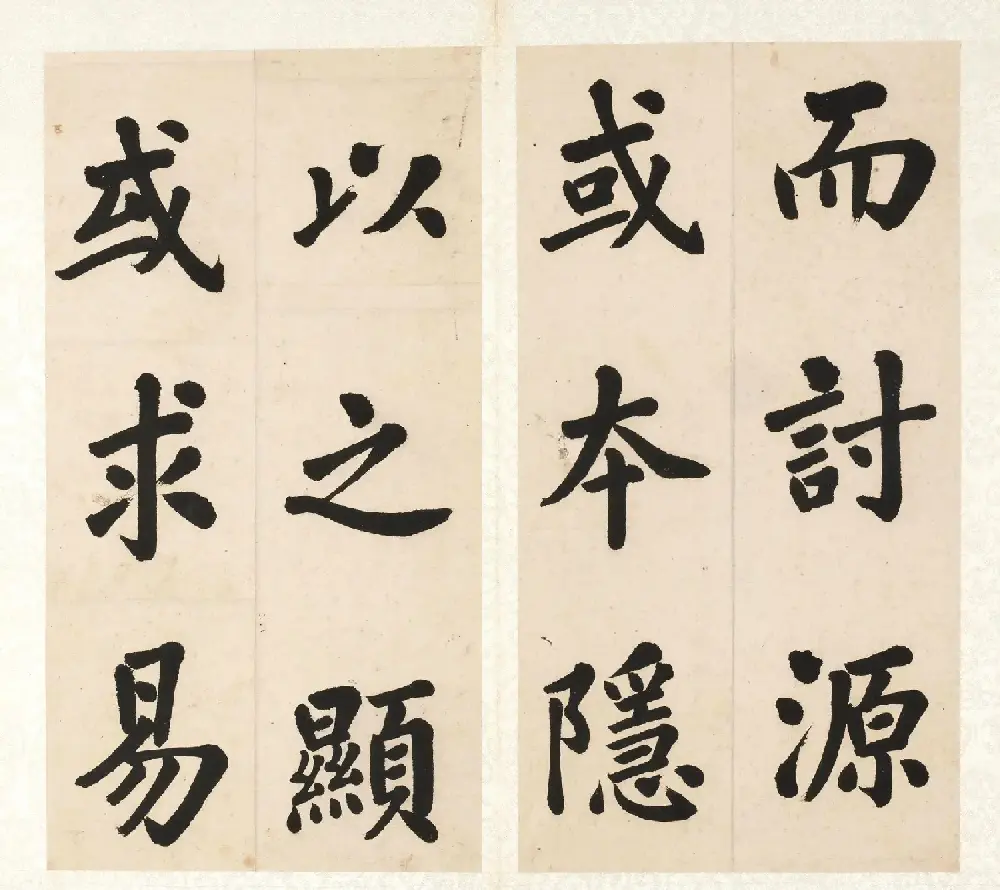 而討源
或本隱
以之顯
或求易